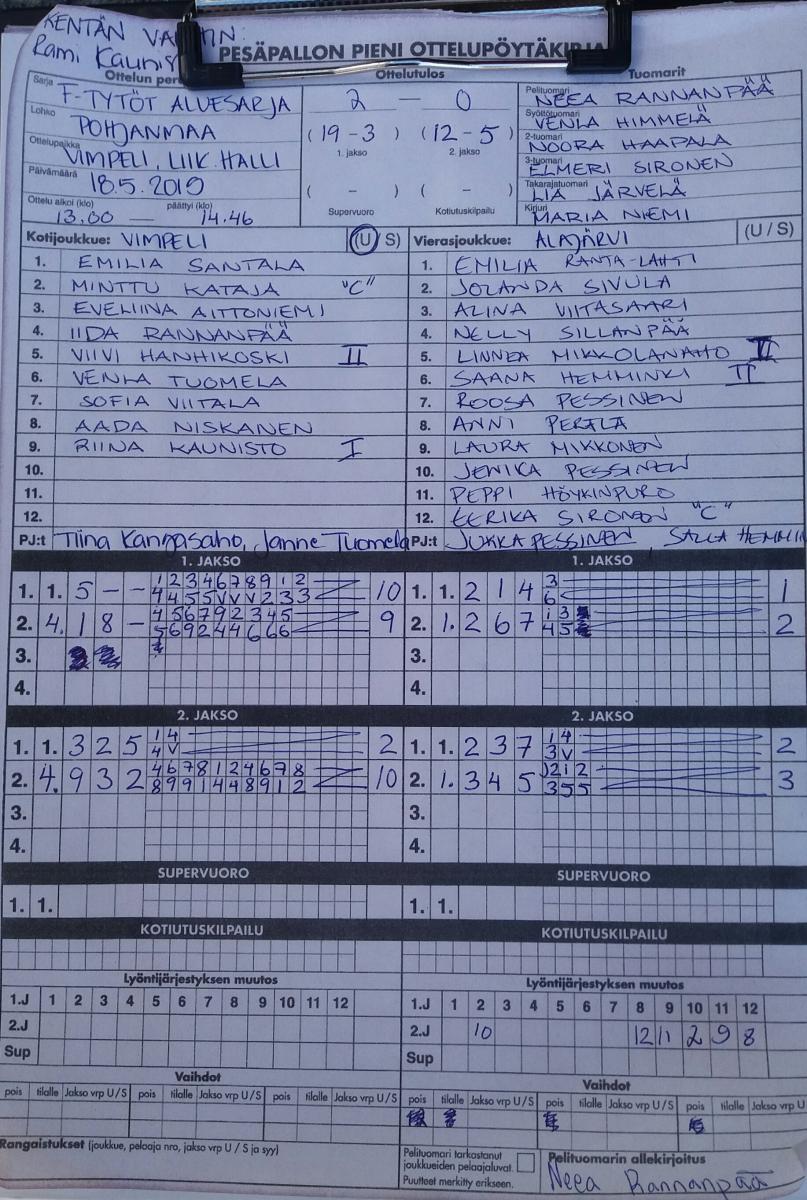 KENTÄN
Rami
PESÄPALLON PIENI OTTELUPÖYTÄKIRJA
Ottelun
Ottelutulos
Tuomarit
Sarja F-TYTÖT ALUESARJA
Lohko POHJANMAA
Ottelupaikka VIMPELI, LIIK. HALLI
Päivämäärä 18.5.2019
Ottelu alkoi (klo) päättyi (klo)
13.00 — 14.46
2 — 0
(19-3) (12-5)
1. jakso 2. jakso
( - ) ( - )
Supervuoro Kotiutuskilpailu
Pelituomari NEEA RANNANPÄÄ
Syöttötuomari VENLA HIMMELÄ
2-tuomari NOORA HAAPALA
3-tuomari ELMERI SIRONEN
Takarajatuomari LIA JÄRVELÄ
Kirjuri MARIA NIEMI
Kotijoukkue: VIMPELI (U/S)
1. EMILIA SANTALA
2. MINTTU KATAJA "C"
3. EVELIINA AITTONIEMI
4. IIDA RANNANPÄÄ
5. VIIVI HANHIKOSKI II
6. VENLA TUOMELA
7. SOFIA VIITALA
8. AADA NISKANEN
9. RIINA KAUNISTO I
10.
11.
12.
PJ:t Tiina Kangasaho, Janne Tuomela
Vierasjoukkue: ALAJÄRVI (U/S)
1. EMILIA RANTA-LAHTI
2. JOLANDA SIVULA
3. ALINA VIITASAARI
4. NELLY SILLANPÄÄ
5. LINNEA MIKKOLANAHO II
6. SAANA HEMMINKI II
7. ROOSA PESSINEN
8. ANNI PERÄLÄ
9. LAURA MIKKONEN
10. JENIKA PESSINEN
11. PEPPI HÖYKINPURO
12. EERIKA SIRONEN "C"
PJ:t JUKKA PESSINEN SALLA
1. JAKSO
1. 1. 5 - - 1 2 3 4 6 7 8 9 1 2 10
4 4 5 5 V V V 2 3 3
2. 4. 1 8 - 4 5 6 7 9 2 3 4 5 9
5 6 9 2 4 4 6 6 6
3.
4.
1. JAKSO
1. 1. 2 1 4 3 1
6
2. 1. 2 6 7 1 3 2
4 5
3.
4.
2. JAKSO
1. 1. 3 2 5 1 4 2
4 V
2. 4. 9 3 2 4 6 7 8 1 2 4 6 7 8 10
8 9 9 1 4 4 8 9 1 2
3.
4.
2. JAKSO
1. 1. 2 3 7 1 4 2
3 V
2. 1. 3 4 5 2 1 2 3
3 5 5
3.
4.
SUPERVUORO
1. 1.
SUPERVUORO
1. 1.
KOTIUTUSKILPAILU
KOTIUTUSKILPAILU
Lyöntijärjestyksen muutos
1.J 1 2 3 4 5 6 7 8 9 10 11 12
2.J
Sup
Lyöntijärjestyksen muutos
1.J 1 2 3 4 5 6 7 8 9 10 11 12
2.J 10 12 11 2 9 8
Sup
Vaihdot
pois tilalle Jakso vrp U/S pois tilalle Jakso vrp U/S pois tilalle Jakso vrp U/S
Vaihdot
pois tilalle Jakso vrp U/S pois tilalle Jakso vrp U/S pois tilalle Jakso vrp U
Rangaistukset (joukkue, pelaaja nro, jakso vrp U / S ja syy)
Pelituomari tarkastanut
joukkueiden pelaajaluvat.
Puutteet merkitty erikseen.
Pelituomarin allekirjoitus
Neea Rannanpää